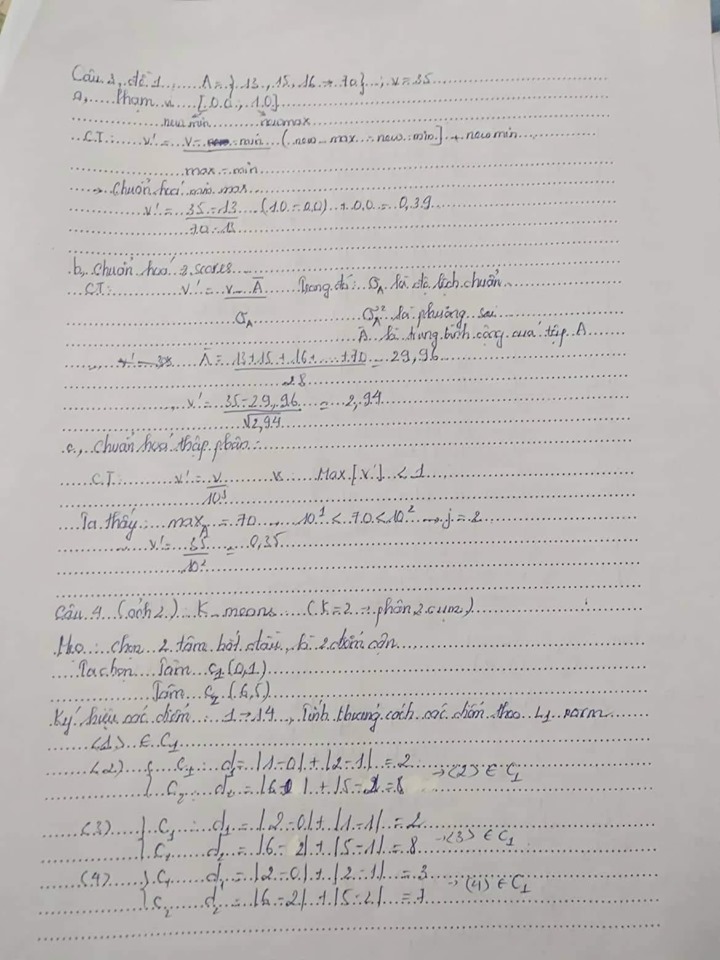 Câu 2, đề 1 A = { 13, 15, 16 → 70 } ; v = 35
a, Phạm vi [0.0, 1.0]
new min newmax
C.T: v' = v - min (new - max - new - min) + new min
max - min
→ Chuẩn hoá min max
v' = 35 - 13 (1.0 - 0.0) + 0.0 = 0,39
70 - 13
b, Chuẩn hoá z scores
C.T: v' = v - Ā Trong đó: σA là độ lệch chuẩn
σA σA² là phương sai
Ā là trung bình cộng của tập A
Ā = 13 + 15 + 16 + ... + 70 = 29,96
28
v' = 35 - 29,96 = 2,94
√2,94
c, Chuẩn hoá thập phân:
C.T: v' = v Max |v'| < 1
10^j
Ta thấy: maxA = 70 10^1 < 70 < 10^2 → j = 2
v' = 35 = 0,35
10^2
Câu 4 (cách 2): K-means (K = 2 → phân 2 cụm)
Mẹo: chọn 2 tâm bắt đầu là 2 điểm
Ta chọn Tâm C1 (0,1)
Tâm C2 (6,5)
Ký hiệu các điểm: 1 → 14, Tính khoảng cách các điểm theo L1 norm
(1) ∈ C1
(2) { C1: d1 = |1 - 0| + |2 - 1| = 2
{ C2: d2 = |6 - 1| + |5 - 2| = 8 → (2) ∈ C1
(3) } C1: d1 = |2 - 0| + |1 - 1| = 2
d2 = |6 - 2| + |5 - 1| = 8 → (3) ∈ C1
(4) } C1 d1 = |2 - 0| + |2 - 1| = 3
} C2 d2 = |6 - 2| + |5 - 2| = 7 → (4) ∈ C1